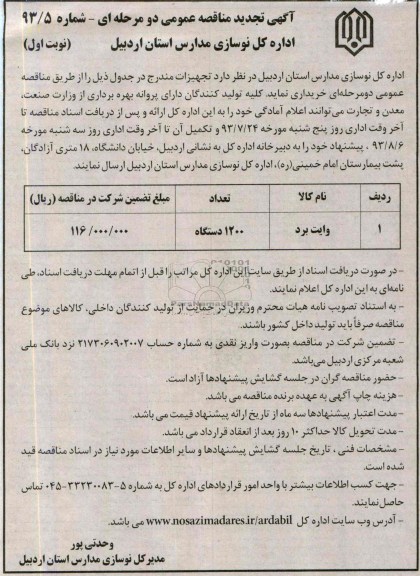 آگهی تجدید مناقصه عمومی دو مرحله ای - شماره ۹۳/۵
اداره کل نوسازی مدارس استان اردبیل (نوبت اول)
اداره کل نوسازی مدارس استان اردبیل در نظر دارد تجهیزات مندرج در جدول ذیل را از طریق مناقصه
عمومی دومرحله‌ای خریداری نماید. کلیه تولید کنندگان دارای پروانه بهره برداری از وزارت صنعت،
معدن و تجارت می‌توانند اعلام آمادگی خود را به این اداره کل ارائه و پس از دریافت اسناد مناقصه تا
آخر وقت اداری روز پنج شنبه مورخه ۹۳/۷/۲۴ و تکمیل آن تا آخر وقت اداری روز سه شنبه مورخه
۹۳/۸/۶ ، پیشنهاد خود را به دبیرخانه اداره کل به نشانی اردبیل، خیابان دانشگاه، ۱۸ متری آزادگان،
پشت بیمارستان امام خمینی(ره)، اداره کل نوسازی مدارس استان اردبیل ارسال نمایند.
ردیف نام کالا تعداد مبلغ تضمین شرکت در مناقصه (ریال)
۱ وایت برد ۱۲۰۰ دستگاه ۱۱۶/۰۰۰/۰۰۰
- در صورت دریافت اسناد از طریق سایت این اداره کل مراتب را قبل از اتمام مهلت دریافت اسناد، طی
نامه‌ای به این اداره کل اعلام نمایند.
- به استناد تصویب نامه هیات محترم وزیران در حمایت از تولید کنندگان داخلی، کالاهای موضوع
مناقصه صرفاً باید تولید داخل کشور باشند.
- تضمین شرکت در مناقصه بصورت واریز نقدی به شماره حساب ۲۱۷۳۰۶۰۹۰۲۰۰۷ نزد بانک ملی
شعبه مرکزی اردبیل می‌باشد.
- حضور مناقصه گران در جلسه گشایش پیشنهادها آزاد است.
- هزینه چاپ آگهی به عهده برنده مناقصه می باشد.
- مدت اعتبار پیشنهادها سه ماه از تاریخ ارائه پیشنهاد قیمت می باشد.
- مدت تحویل کالا حداکثر ۱۰ روز بعد از انعقاد قرارداد می باشد.
- مشخصات فنی ، تاریخ جلسه گشایش پیشنهادها و سایر اطلاعات مورد نیاز در اسناد مناقصه قید
شده است.
- جهت کسب اطلاعات بیشتر با واحد امور قراردادهای اداره کل به شماره ۵-۳۳۲۳۰۰۸۳-۰۴۵ تماس
حاصل نمایند.
- آدرس وب سایت اداره کل www.nosazimadares.ir/ardabil می باشد.
وحدتی پور
مدیرکل نوسازی مدارس استان اردبیل